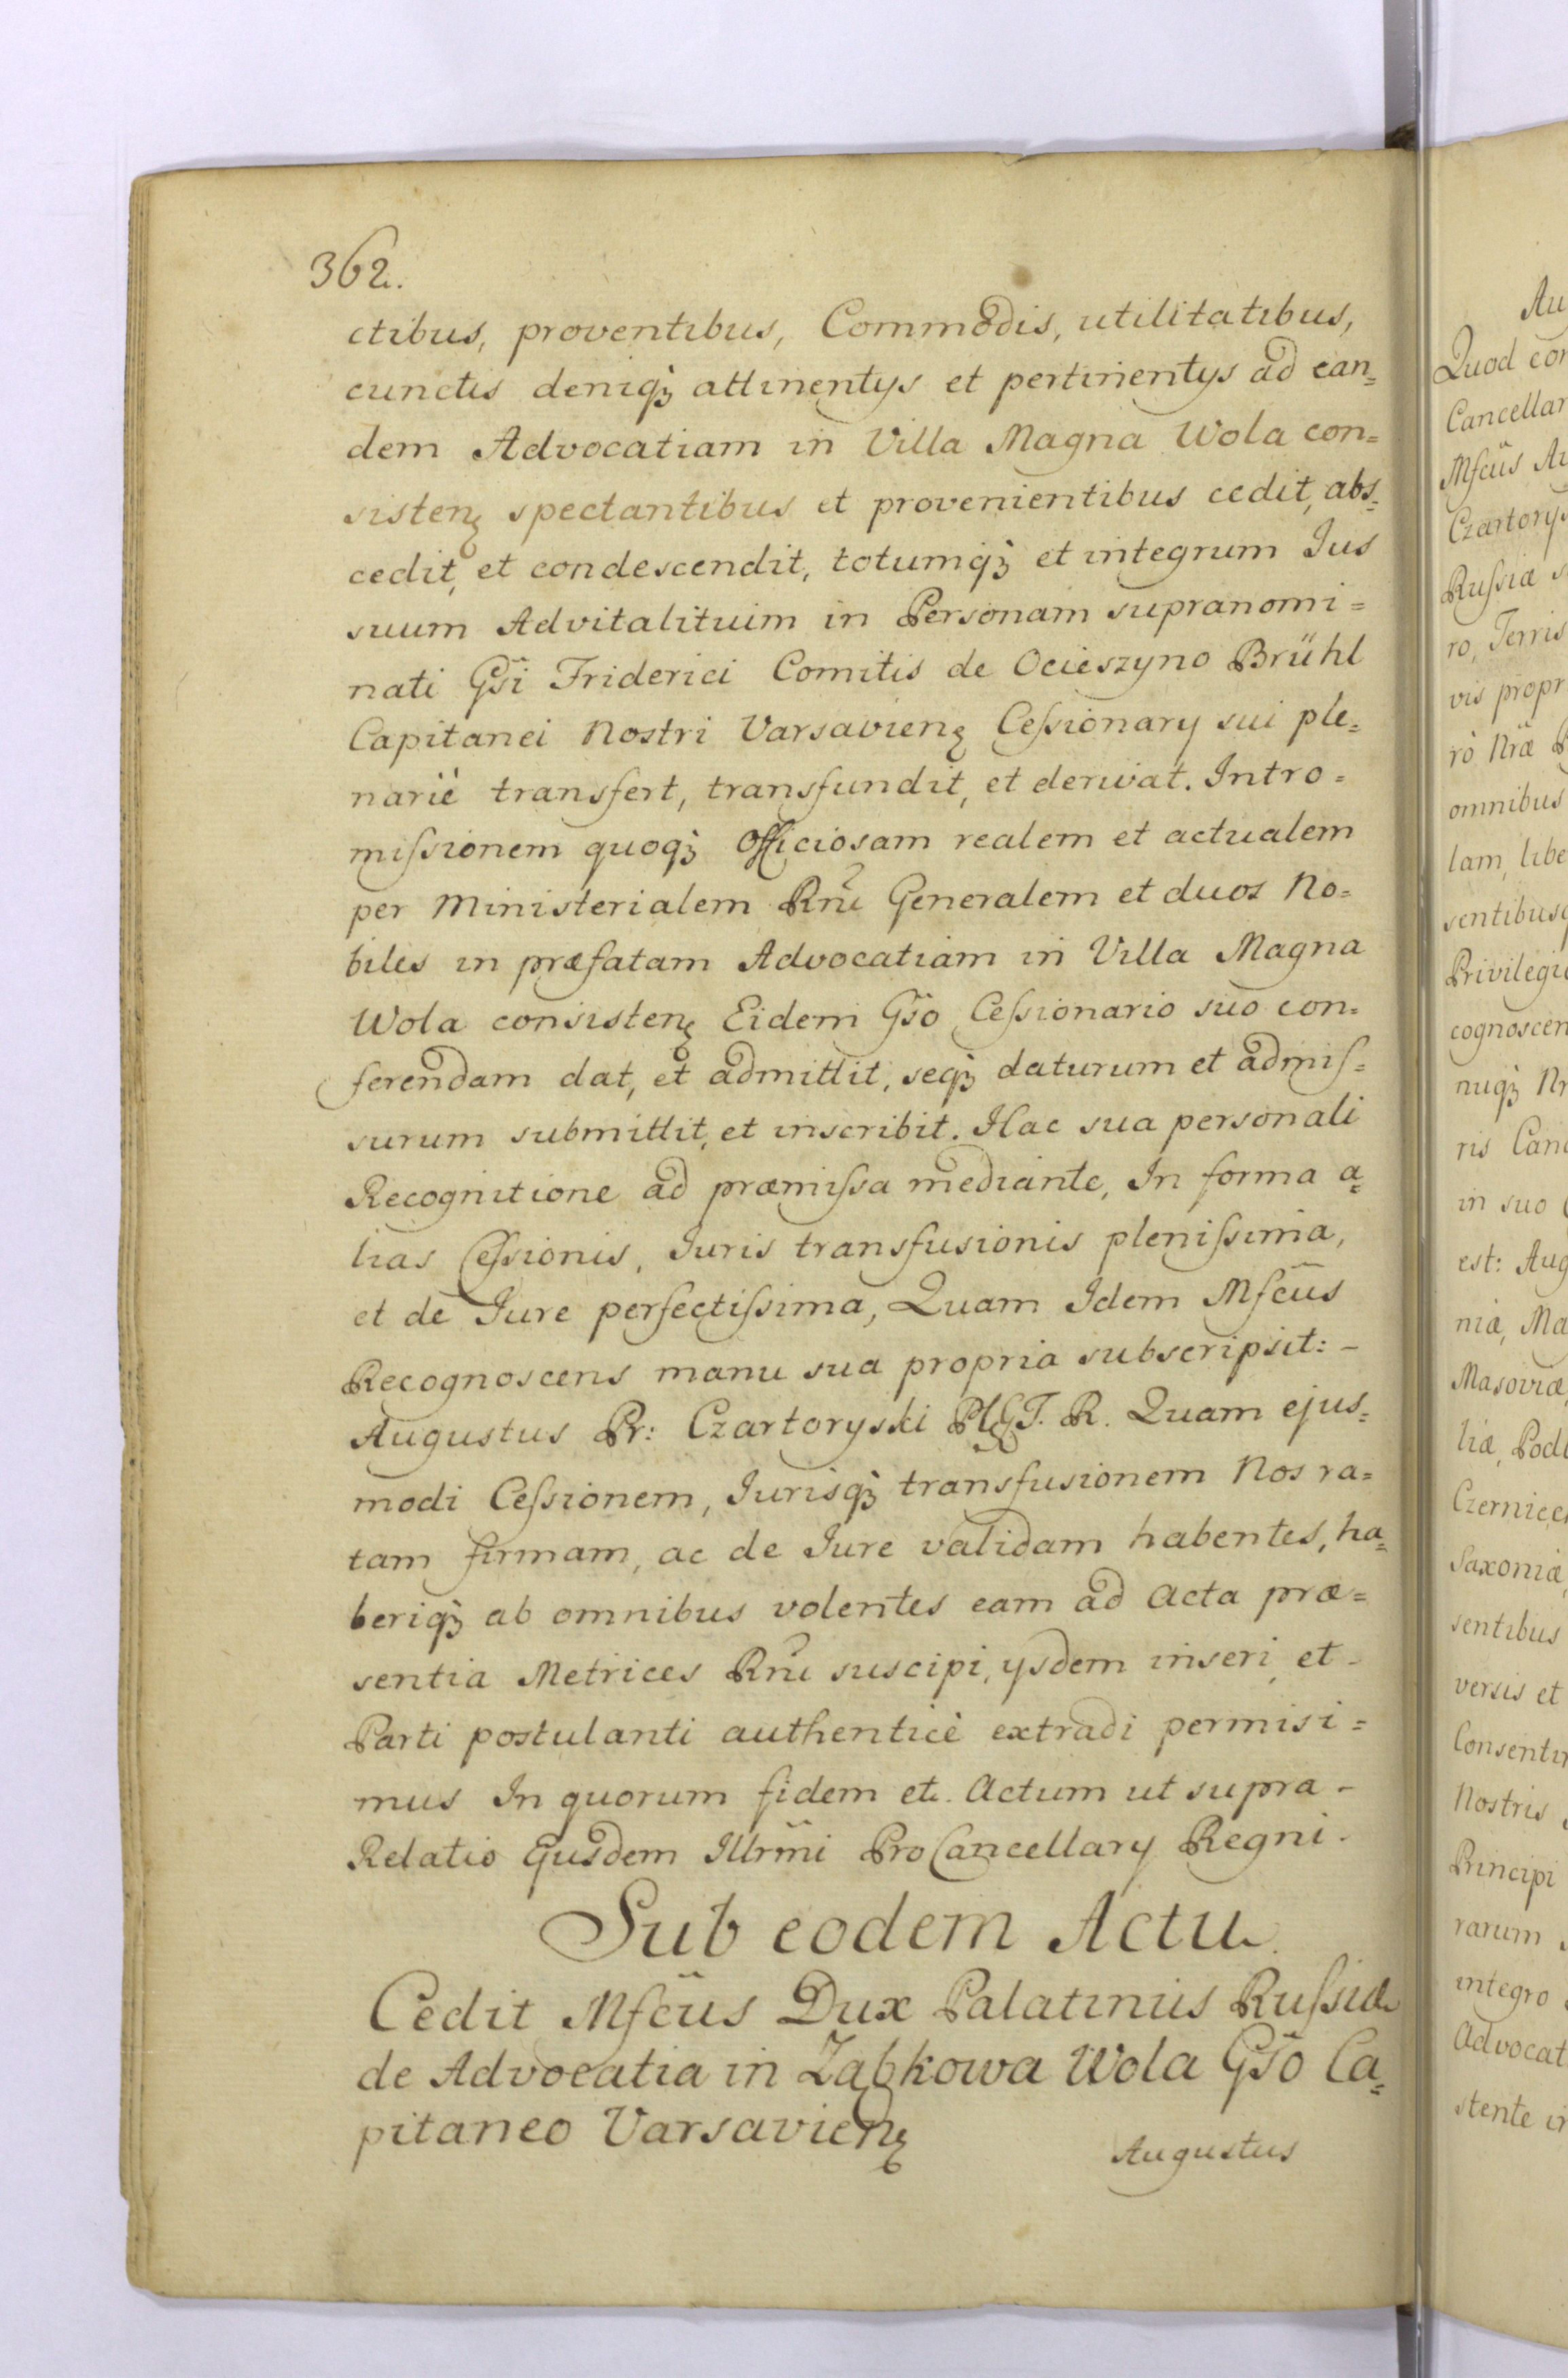 362.
ctibus, proventibus, Commodis, utilitatibus,
cunctis deniq₃ attinentys et pertinentys ad ean=
dem Advocatiam in Villa Magna Wola con=
sisten̨ spectantibus et provenientibus cedit, abs=
cedit, et condescendit, totumq₃ et integrum Jus
suum Advitalituim in Personam supranomi=
nati Gsi Friderici Comitis de Ocieszyno Brühl
Capitanei Nostri Varsavien̨ Ceſsionary sui ple=
nariè transfert, transfundit, et derivat. Intro=
miſsionem quoq₃ Officiosam realem et actualem
per Ministerialem Rñi Generalem et duos No=
biles in præfatam Advocatiam in Villa Magna
Wola consisten̨ Eidem Gso Ceſsionario suo con=
ferendam dat, et admittit, seq₃ daturum et admiſ=
surum submittit, et inscribit. Hac sua personali
Recognitione ad præmiſsa mediante, In forma a=
lias Ceſsionis, Juris transfusionis pleniſsima,
et de Jure perfectiſsima, Quam Idem Mfcus
Recognoscens manu sua propria subscripsit: -
Augustus Pr: Czartoryski PWGJ. R. Quam ejus=
modi Ceſsionem, Jurisq₃ transfusionem Nos ra=
tam firmam, ac de Jure validam habentes, ha=
beriq₃ ab omnibus volentes eam ad Acta præ=
sentia Metrices Rñi suscipi, ysdem inseri, et -
Parti postulanti authenticè extradi permisi=
mus In quorum fidem etc. Actum ut supra -
Relatio Ejusdem Illrmi ProCancellary Regni.
Sub eodem Actu.
Cedit Mfcus Dux Palatinus Ruſsiæ
de Advocatia in Ząbkowa Wola Gso Ca=
pitaneo Varsavien̨
Augustus
Au
Quod con
Cancellar
Mfcus Au
Czartorys
Ruſsiæ s
ro, Terris
vis propr
rò Nræ P
omnibus
lam, libe
sentibusq
Privilegio
cognoscen
nuq₃ Nr
ris Canc
in suo
est: Aug
niæ, Ma
Masoviæ,
liæ, Podl
Czernicce
Saxoniæ,
sentibus
versis et
Consentir
Nostris
Principi
rarum
integro
Advocat
stente in